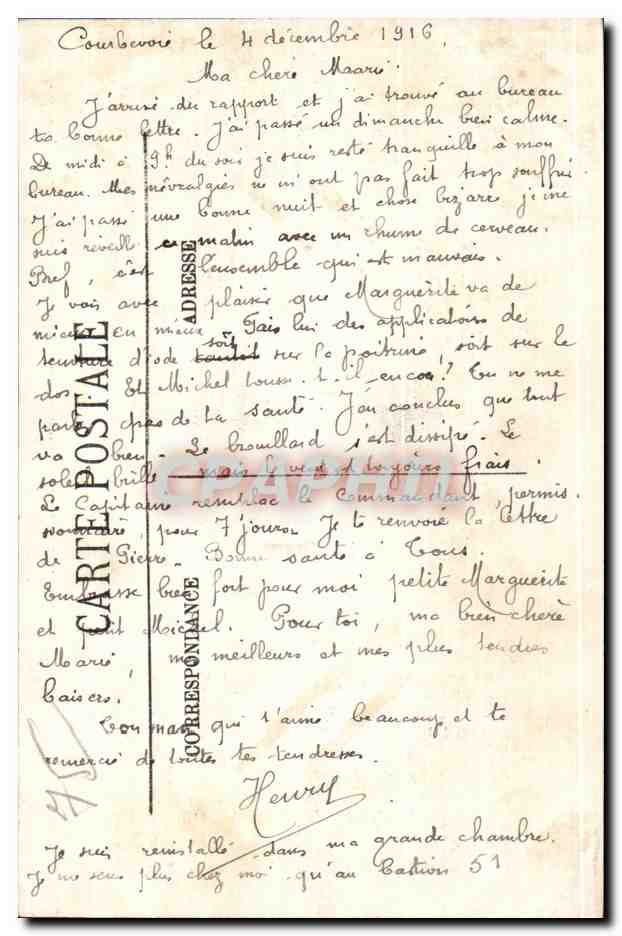 Courbevoie le 4 décembre 1916,
Ma cheré Maarie.
J'arrive du rapport et j'ai trouvé au bureau
ta bonne lettre. J'ai passé un dimanche bien calme.
De midi à 9h du soir je suis resté tranquille à mon
bureau. Mes névralgies ne m'ont pas fait trop souffrir.
J'ai passé une bonne nuit et chose bizare je me
suis réveillé ce matin avec un rhume de cerveau.
Bref, c'est l'ensemble qui est mauvais.
Je vois avec plaisir que Marguérite va de
mieux en mieux. Fais lui des applications de
teinture d'iode soit sur la poitrine, soit sur le
dos. Et Michel tousse-t-il encore? Tu ne me
parles pas de ta santé. J'en conclus que tout
va bien. Le brouillard s'est dissipé. Le
soleil brille mais le vent est toujours frais.
Le Capitaine remplace le Commandant, permis-
sionnaire, pour 7 jours. Je te renvoie la lettre
de Pierre. Bonne santé à Tous.
Embrasse bien fort pour moi petite Marguerite
et petit Michel. Pour toi, ma bien cheré
Marie, mes meilleurs et mes plus tendres
baisers.
Ton mari qui t'aime beaucoup et te
remercie de toutes tes tendresses.
Henry
Je suis reinstallé dans ma grande chambre.
Je me sens plus chez moi qu'au Bastion 51
CARTE POSTALE
ADRESSE
CORRESPONDANCE
CPAPHIL
75